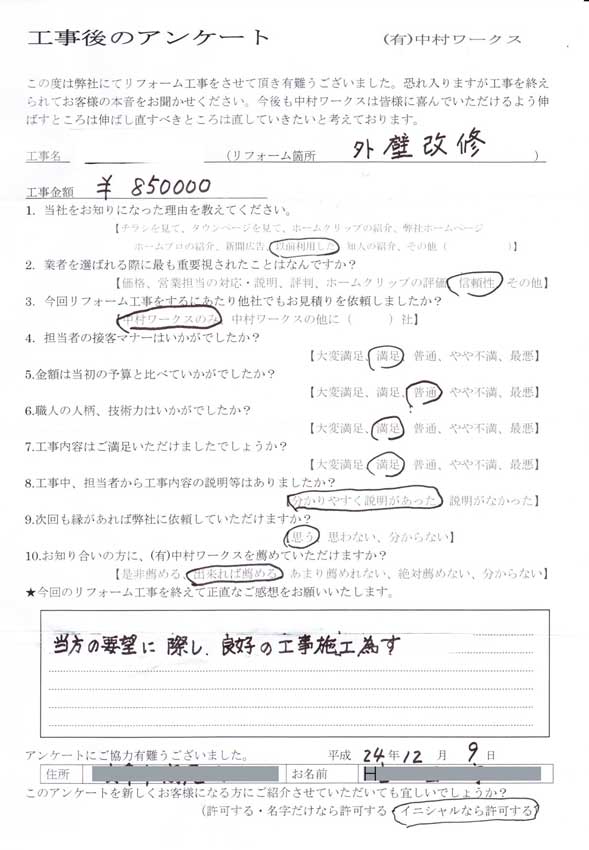 工事後のアンケート (有)中村ワークス
この度は弊社にてリフォーム工事をさせて頂き有難うございました。恐れ入りますが工事を終え
られてお客様の本音をお聞かせください。今後も中村ワークスは皆様に喜んでいただけるよう伸
ばすところは伸ばし直すべきところは直していきたいと考えております。
工事名 (リフォーム箇所 外壁改修 )
工事金額 ¥850000
1. 当社をお知りになった理由を教えてください。
【チラシを見て、タウンページを見て、ホームクリップの紹介、弊社ホームページ
ホームプロの紹介、新聞広告、以前利用した、知人の紹介、その他( )】
2. 業者を選ばれる際に最も重要視されたことはなんですか？
【価格、営業担当の対応・説明、評判、ホームクリップの評価、信頼性、その他】
3. 今回リフォーム工事をするにあたり他社でもお見積りを依頼しましたか？
【中村ワークスのみ、中村ワークスの他に( )社】
4. 担当者の接客マナーはいかがでしたか？
【大変満足、満足、普通、やや不満、最悪】
5.金額は当初の予算と比べていかがでしたか？
【大変満足、満足、普通、やや不満、最悪】
6.職人の人柄、技術力はいかがでしたか？
【大変満足、満足、普通、やや不満、最悪】
7.工事内容はご満足いただけましたでしょうか？
【大変満足、満足、普通、やや不満、最悪】
8.工事中、担当者から工事内容の説明等はありましたか？
【分かりやすく説明があった、説明がなかった】
9.次回も縁があれば弊社に依頼していただけますか？
【思う、思わない、分からない】
10.お知り合いの方に、(有)中村ワークスを薦めていただけますか？
【是非薦める、出来れば薦める、あまり薦めれない、絶対薦めない、分からない】
★今回のリフォーム工事を終えて正直なご感想をお願いいたします。
当方の要望に際し、良好の工事施工為す
アンケートにご協力有難うございました。 平成 24年 12 月 9 日
住所 お名前 H
このアンケートを新しくお客様になる方にご紹介させていただいても宜しいでしょうか？
(許可する・名字だけなら許可する・イニシャルなら許可する)